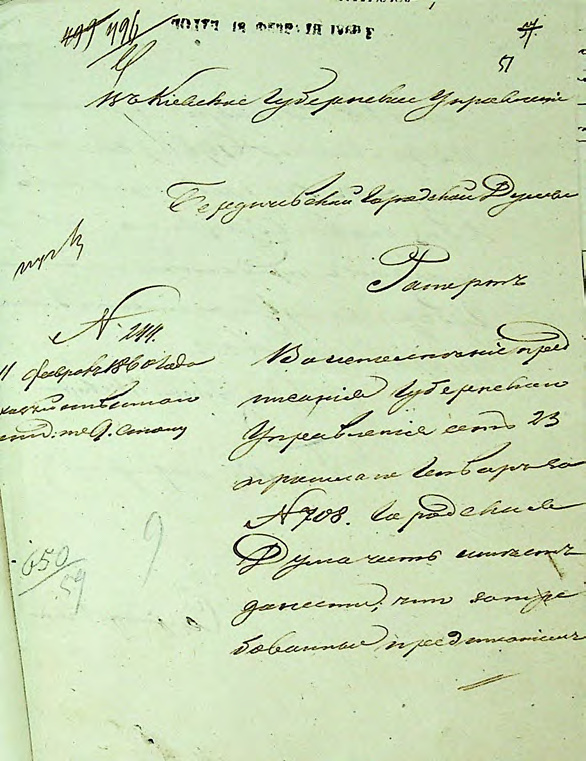 495 496
ПОЛУЧ. 18 ФЕВРАЛЯ 1860 Г
57
Въ Кіевское Губернское Управленіе
Бердичевской Городской Думы
Рапортъ
N 244.
11 Февраля 1860 Года
Во исполненіе пред
писанія Губернскаго
Управленія отъ 23
прошлаго Января за
N 708. Городская
Дума честь имѣетъ
донести, что затре
бованные предписаніемъ
650/59
9